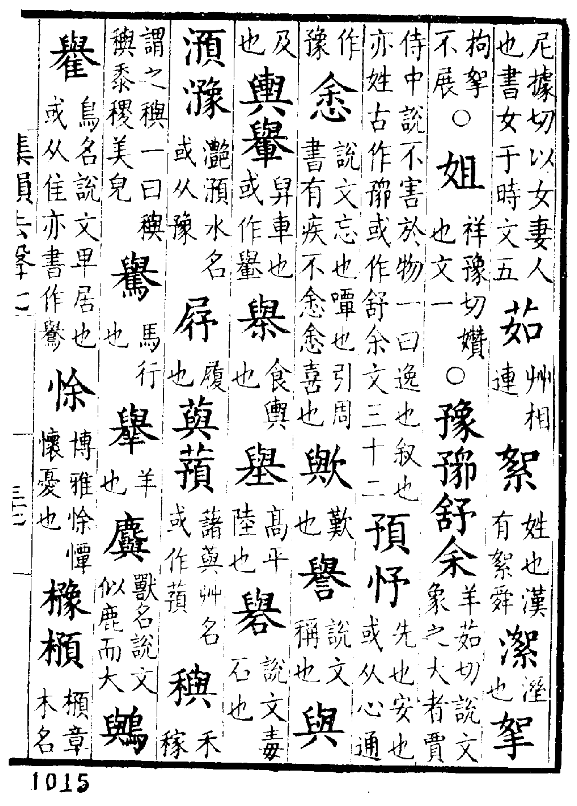 尼據切以女妻人也書女于時文五 茹 艸相連 絮 姓也漢有絮舜 潔 溼也 挐
拘挐不展○ 姐 祥豫切嬻也文一○ 豫豫舒余 羊茹切說文象之大者賈
侍中說不害於物一曰逸也叙也亦姓古作豫或作舒余文三十二 預忬 先也安也或从心通
作豫 悆 說文忘也嘾也引周書有疾不悆悆喜也 歟 歎也 譽 說文稱也 與
及也 輿轝 舁車也或作轝 𦦙 食輿也 𦦙 高平陸也 礜 說文毒石也
澦㵧 灩澦水名或从豫 㞊 履也 藇蕷 藷藇艸名或作蕷 穥 禾稼
謂之穥一曰穥穥黍稷美皃 鸒 馬行也 𦏻 羊也 麌 獸名說文似鹿而大 鸒
鸒 鳥名說文卑居也或从隹亦書作鸒 悇 博雅悇憛懷憂也 櫲𣞚 櫲章木名
集韻去聲七
1015